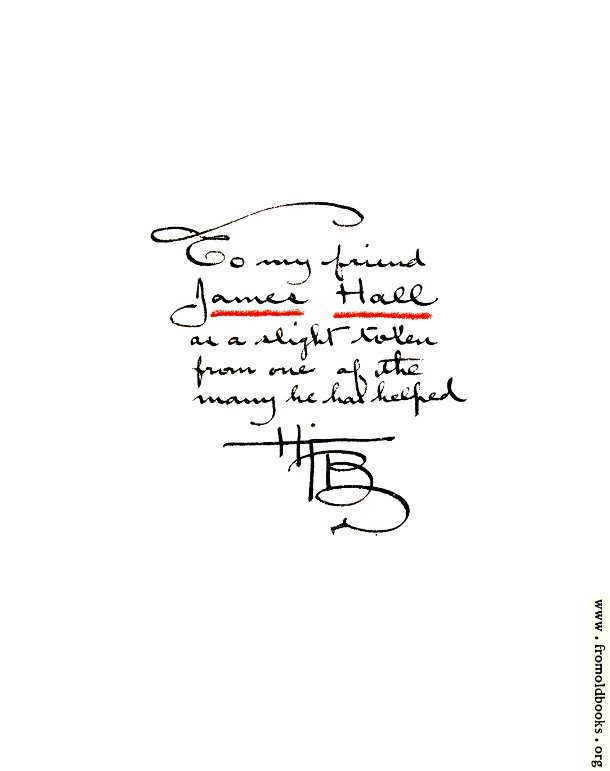 To my friend
James Hall
as a slight token
from one of the
many he has helped
HJB
www.fromoldbooks.org